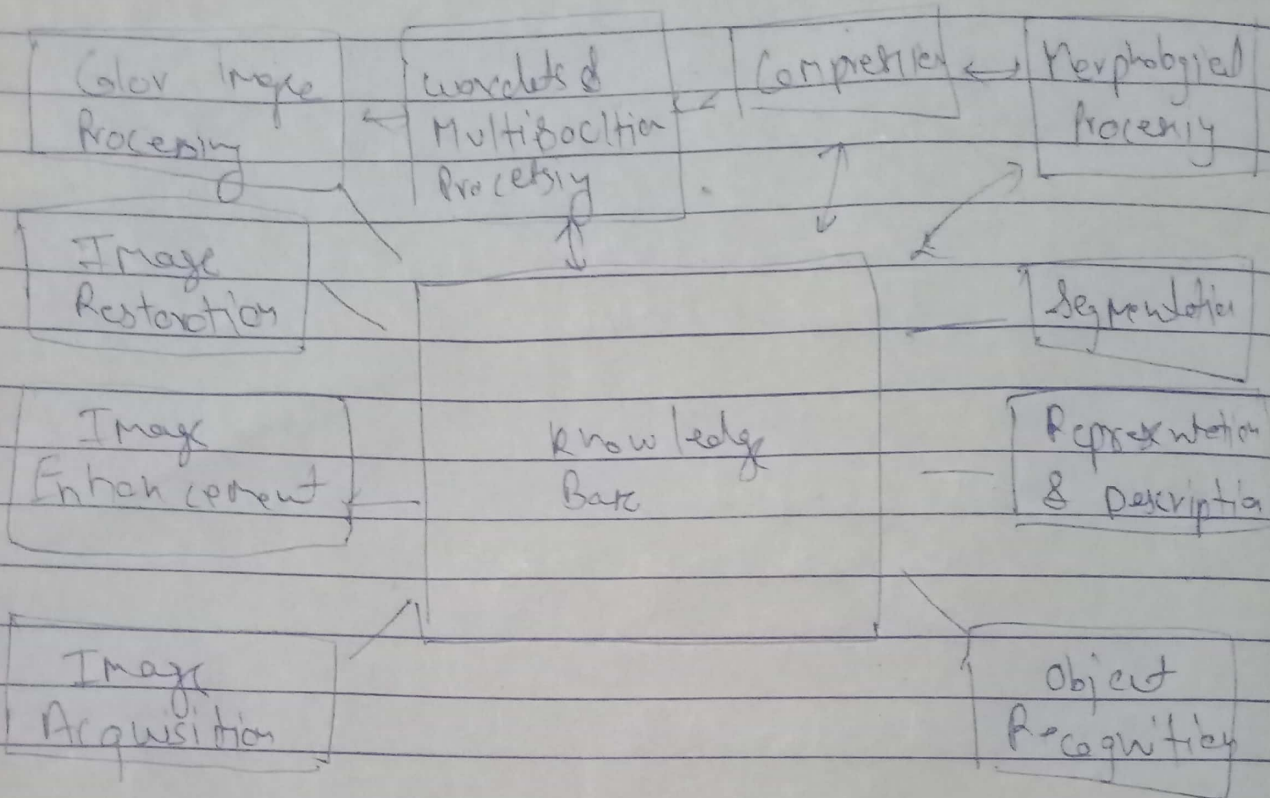 Color Image
Processing
wavelets &
Multisocltion
Processiy
Compression
Morphologicl
Processiy
Image
Restoration
Segmentation
Image
Enhancement
Knowledge
Base
Representation
& Description
Image
Acquisition
Object
Recognition